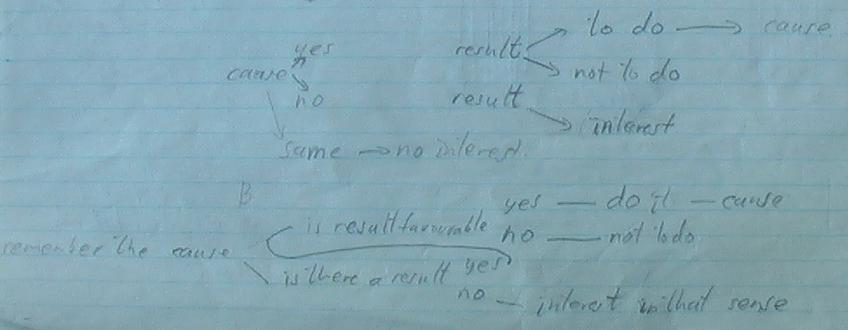 to do → cause
yes
result
cause
not to do
no
result
interest
same → no interest.
B
yes — do it — cause
is result favourable
no — not to do
remember the cause
yes
is there a result
no — interest in that sense